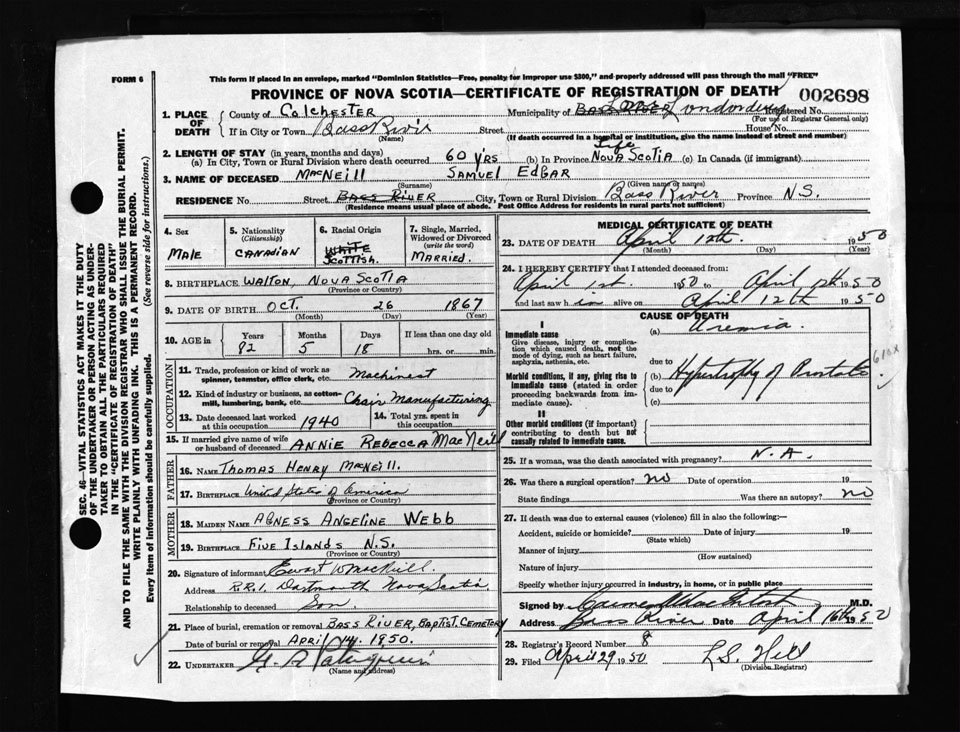 FORM 6
This form if placed in an envelope, marked "Dominion Statistics—Free, penalty for improper use $300," and properly addressed will pass through the mail "FREE"
PROVINCE OF NOVA SCOTIA—CERTIFICATE OF REGISTRATION OF DEATH
002698
1. PLACE OF DEATH
County of Colchester Municipality of Bass River Londonderry Registered No.
(For use of Registrar General only)
If in City or Town Bass River Street House No.
(Name) (If death occurred in a hospital or institution, give the name instead of street and number)
2. LENGTH OF STAY (in years, months and days)
(a) In City, Town or Rural Division where death occurred 60 yrs (b) In Province Life Nova Scotia (c) In Canada (if immigrant)
3. NAME OF DECEASED MacNeill Samuel Edgar
(Surname) (Given name or names)
RESIDENCE No. Street Bass River City, Town or Rural Division Bass River Province N.S.
(Residence means usual place of abode. Post Office Address for residents in rural parts not sufficient)
4. Sex
Male
5. Nationality
(Citizenship)
Canadian
6. Racial Origin
White
Scottish.
7. Single, Married, Widowed or Divorced
(write the word)
Married.
8. BIRTHPLACE Walton, Nova Scotia
(Province or Country)
9. DATE OF BIRTH Oct. 26 1867
(Month) (Day) (Year)
10. AGE in
Years Months Days If less than one day old
82 5 18 hrs. or min.
OCCUPATION
11. Trade, profession or kind of work as spinner, teamster, office clerk, etc. Machinest
12. Kind of industry or business, as cotton-mill, lumbering, bank, etc. Chair Manufacturing
13. Date deceased last worked at this occupation 1940
14. Total yrs. spent in this occupation
15. If married give name of wife or husband of deceased Annie Rebecca MacNeill
FATHER
16. Name Thomas Henry MacNeill.
17. Birthplace United States of America
(Province or Country)
MOTHER
18. Maiden Name Agness Angeline Webb
19. Birthplace Five Islands N.S.
(Province or Country)
20. Signature of informant Ewart W MacNeill.
Address R.R.1. Dartmouth Nova Scotia
Relationship to deceased Son.
21. Place of burial, cremation or removal Bass River, Baptist. Cemetery
Date of burial or removal April 14. 1950.
22. Undertaker
(Name and address)
MEDICAL CERTIFICATE OF DEATH
23. DATE OF DEATH April 12th. 1950
(Month) (Day) (Year)
24. I HEREBY CERTIFY that I attended deceased from:
April 1st. 1950 to April 12th 1950
and last saw him alive on April 12th 1950
CAUSE OF DEATH
I
Immediate cause
Give disease, injury or complication which caused death, not the mode of dying, such as heart failure, asphyxia, asthenia, etc.
(a) Uremia.
due to
Morbid conditions, if any, giving rise to immediate cause (stated in order proceeding backwards from immediate cause).
(b) Hypertrophy of Prostate 610x
due to
(c)
II
Other morbid conditions (if important) contributing to death but not causally related to immediate cause.
25. If a woman, was the death associated with pregnancy? N.A.
26. Was there a surgical operation? no Date of operation 19
State findings Was there an autopsy? no
27. If death was due to external causes (violence) fill in also the following:—
Accident, suicide or homicide? Date of injury 19
(State which)
Manner of injury
(How sustained)
Nature of injury
Specify whether injury occurred in industry, in home, or in public place
Signed by M.D.
Address Bass River Date April 16th 1950
28. Registrar's Record No. 8
29. Filed April 29 1950 L.S. Hill
(Division Registrar)
SEC. 46—VITAL STATISTICS ACT MAKES IT THE DUTY
OF THE UNDERTAKER OR PERSON ACTING AS UNDER-
TAKER TO OBTAIN ALL THE PARTICULARS REQUIRED
IN THE "CERTIFICATE OF REGISTRATION OF DEATH"
AND TO FILE THE SAME WITH THE DIVISION REGISTRAR WHO SHALL ISSUE THE BURIAL PERMIT.
WRITE PLAINLY WITH UNFADING INK. THIS IS A PERMANENT RECORD.
Every item of Information should be carefully supplied. (See reverse side for instructions.)